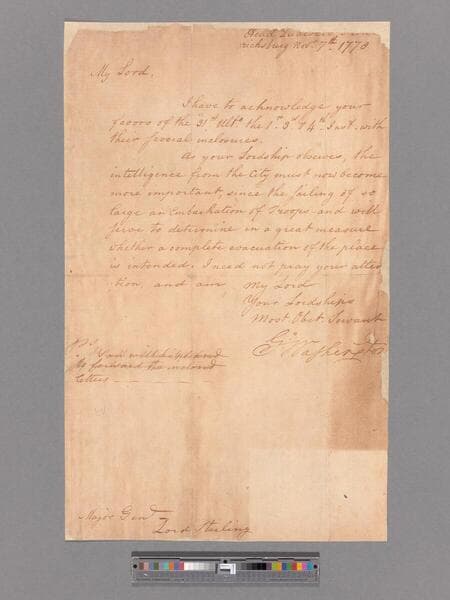 Head Quarters,
ricksburg Novr. 7th. 1778
My Lord,
I have to acknowledge your
favors of the 31st. Ulto. the 1st. 3d. & 4th. Inst. with
their several inclosures.
As your Lordship observes, the
intelligence from the City must now become
more important, since the sailing of so
large an embarkation of Troops and will
serve to determine in a great measure
whether a complete evacuation of the place
is intended. I need not pray your atten
tion, and am, My Lord
Your Lordships
Most Obet Servant
Go. Washington
P.S.
You will be pleased
to forward the inclosed
letters
Major Genl
Lord Sterling